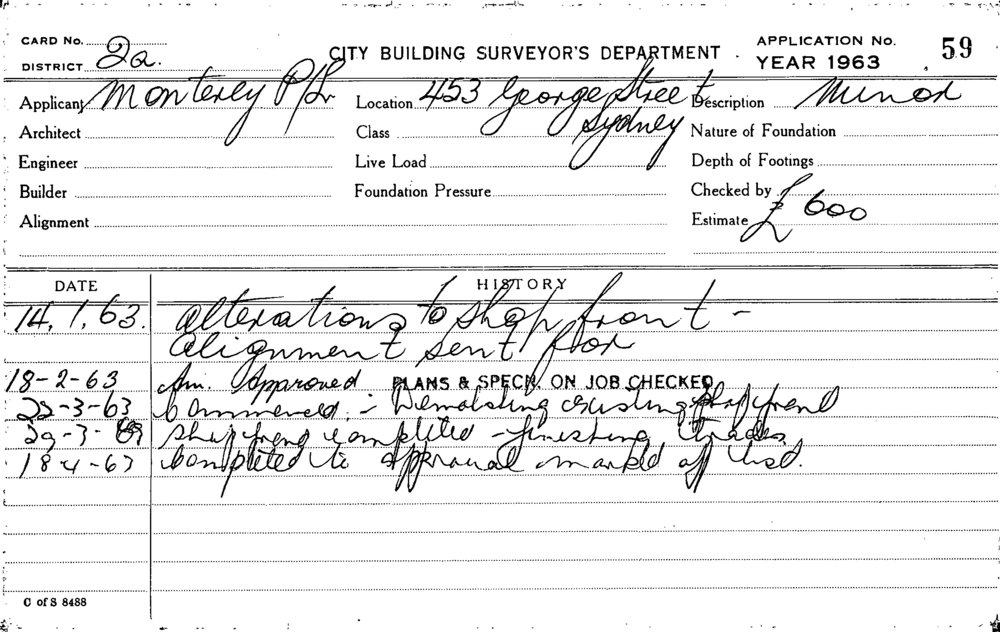 CARD No. 2a.
DISTRICT
CITY BUILDING SURVEYOR'S DEPARTMENT
APPLICATION No. 59
YEAR 1963
Applicant Monterey P/L Location 453 George Street Sydney Description Minor
Architect Class Nature of Foundation
Engineer Live Load Depth of Footings
Builder Foundation Pressure Checked by
Alignment Estimate £600
DATE HISTORY
14.1.63. Alterations to shop front -
Alignment sent for
18-2-63 Am. Approved PLANS & SPECN. ON JOB CHECKED
22-3-63 Commenced. - Demolishing existing shop front
29-3-63 Shop front completed - finishing trades
18-4-63 Completed to approval marked off list.
C of S 8488